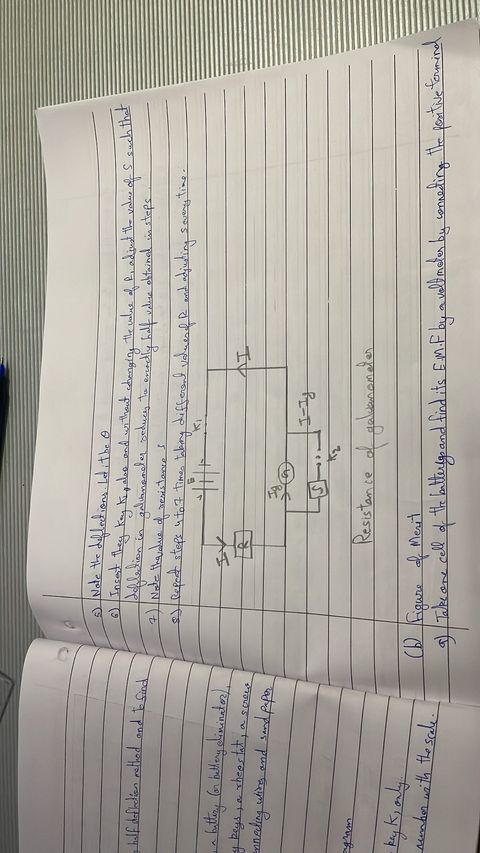 half deflection method and to find
a battery (or battery eliminator),
keys, a rheostat, a screw
connecting wires and sand paper
agram
key K, only.
number with the scale.
5) Note the deflections. Let, be θ
6) Insert they key K, also and without changing the value of R, adjust the value of S such that
deflection in galvanometer reduces to exactly half value obtained in steps
7) Note the value of resistance S
8) Repeat steps 4 to 7 times taking different values of R and adjusting S every time.
E
K1
I
R
I
Ig
G
I-Ig
S
K2
Resistance of galvanometer
(b) Figure of Merit
9) Take one cell of the battery and find its E.M.F by a voltmeter by connecting the positive terminal